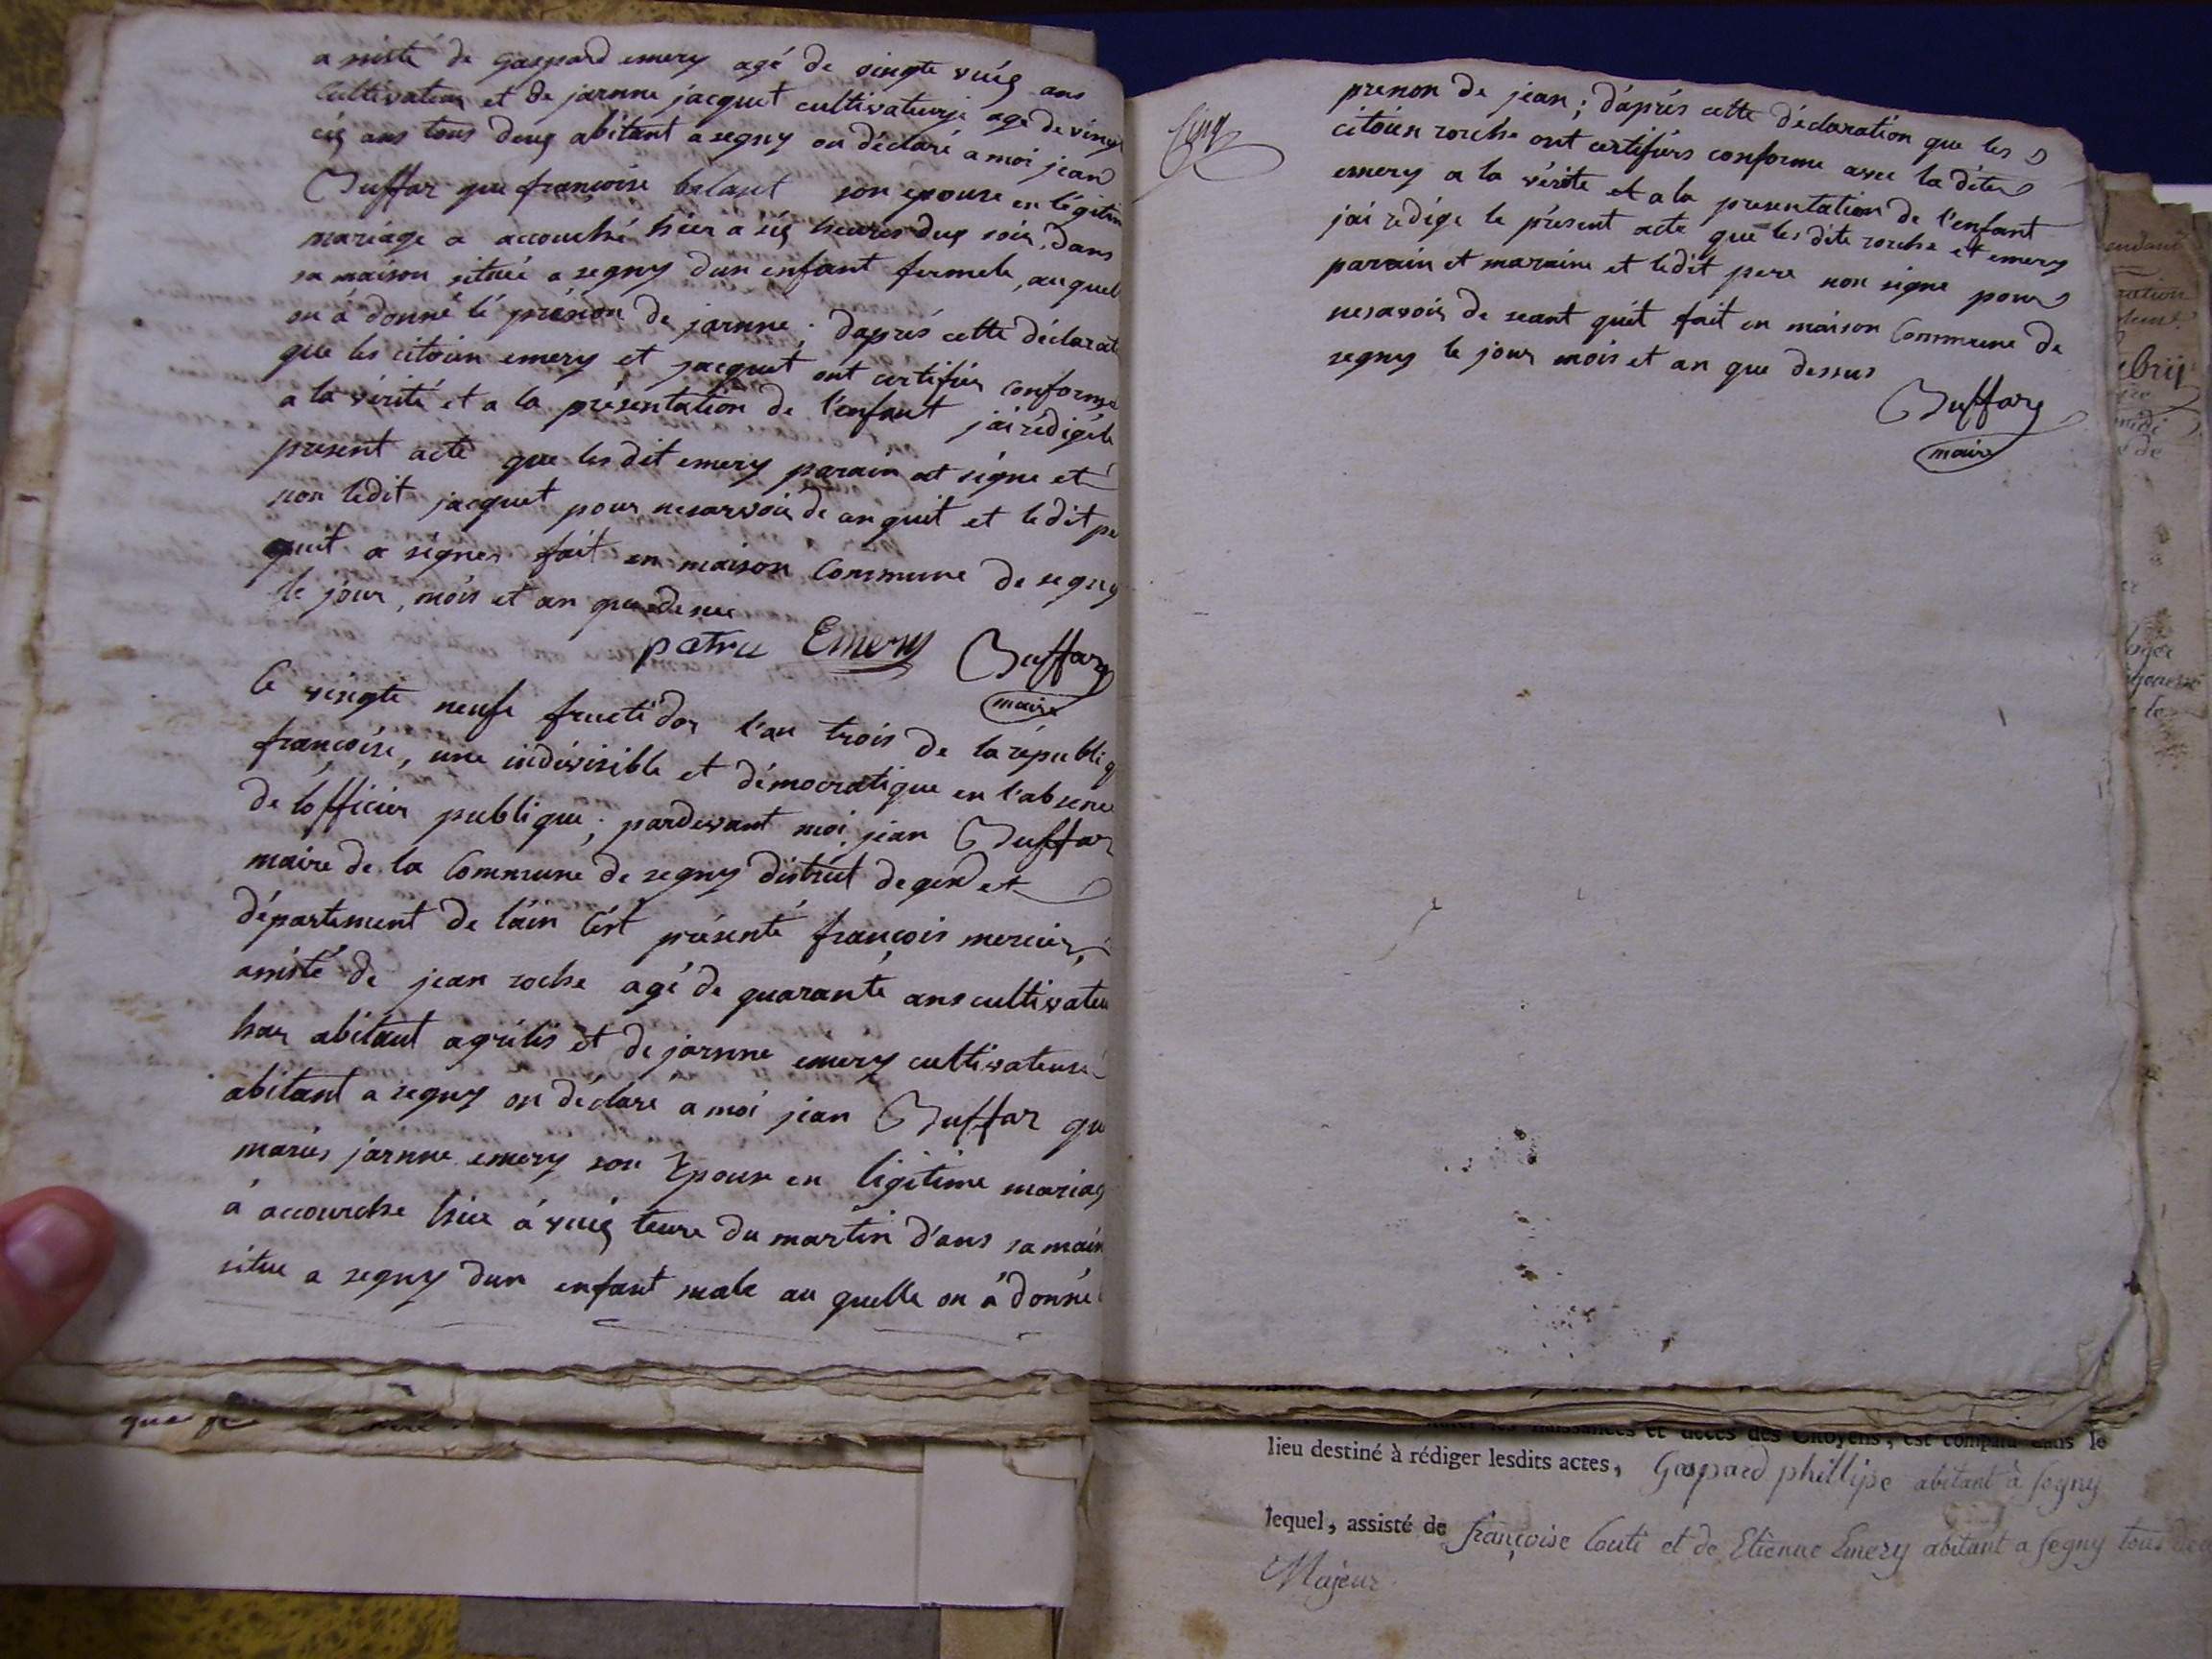 a nisté de gaspard emery agé de vingte vuig ans
Cultivateur et de jarnne jacquet cultivateurje age de vingt
cig ans tous deug abitant a segny on déclaré a moi jean
Buffar que francoise balant son epouse en légitim
mariage a accouché hier a sig heures dug soir, dans
sa maison située a segny dun enfant fermele, auquel
on à donné lé prénon de jarnne; daprés cette déclarat
que les citoien emery et jacquet ont certifiér conforme
a la vérité et a la présentation de l'enfant jai rédigé le
present acte que les dit emery parain at signe et
non ledit jacquet pour nesarvoir de an quit et le dit pe
quit a signer fait en maison Commune de segny
le jour, mois et an que desus
patru Emery Buffar
maire
Le vingte neufe fructidor l'an trois de la républiq
françoise, une indivisible et démocratique en l'absence
de lofficier publique; pardevant moi jean Buffar
maire de la Commune de segny district de gex et
département de lain cést présenté françois mercier,
amisté de jean roche agé de quarante ans cultivateu
har abitant a grilis et de jarnne emery cultivateuse
abitant a segny on déclaré a moi jean Buffar qu
mariés jarnne emery son Epouse en ligitime mariag
à accourche hier á vuig teure du martin d'ans sa main
situe a segny dun enfant male au quelle on á donné
prenon de jean; d'aprés cette déclaration que les
citoien roche ont certifiers conforme avec la dite
emery a la vérite et a la presentation de l'enfant
jai redige le présent acte que les dite roche et emery
parain et maraine et ledit pere non signe pour
nesavoir de seant quit fait en maison Commune de
segny le jour mois et an que dessus
Buffar
maire
naissances et décès des Citoyens, est comparu dans le
lieu destiné à rédiger lesdits actes, Gaspard phillipe abitant à segny
lequel, assisté de françoise Couti et de Etienne Emery abitant a segny tous deu
Majeur